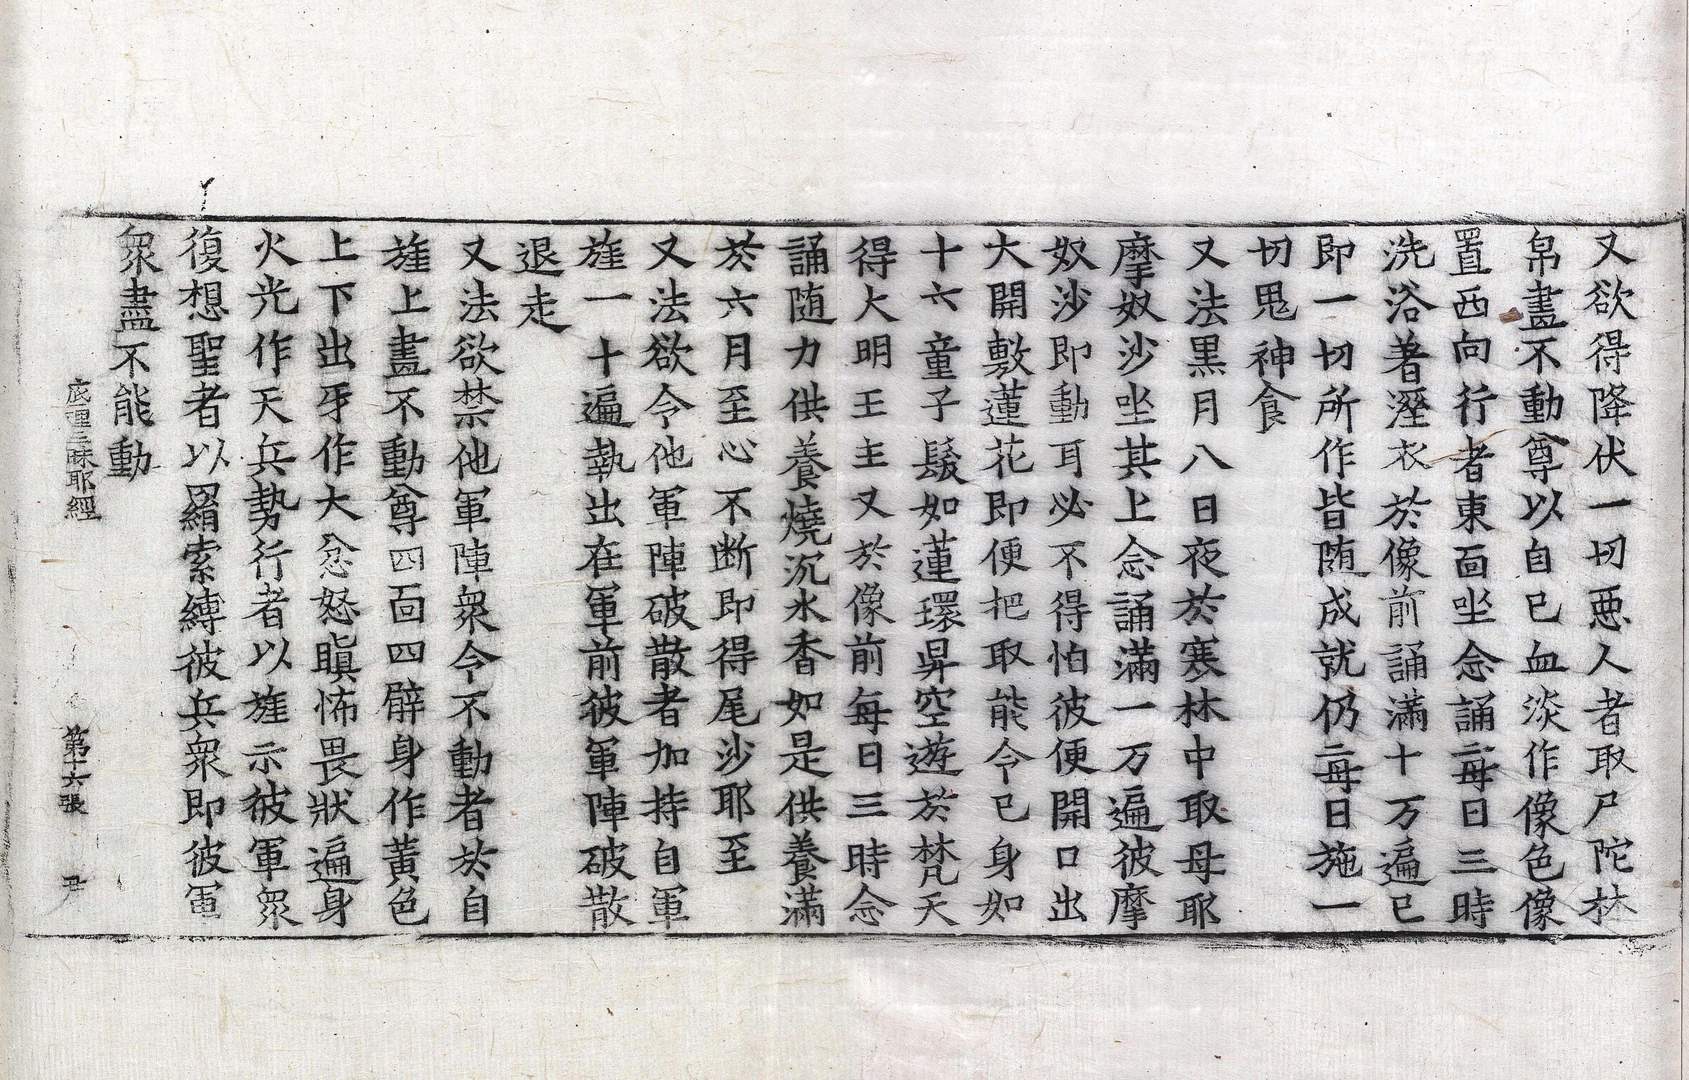 又欲得降伏一切悪人者取尸陀林
帛畫不動尊以自己血淡作像色像
置西向行者東面坐念誦每日三時
洗浴著溼衣於像前誦滿十万遍已
即一切所作皆随成就仍每日施一
切鬼神食
又法黒月八日夜於寒林中取母耶
摩奴沙坐其上念誦滿一万遍彼摩
奴沙即動耳必不得怕彼便開口出
大開敷蓮花即便把取能令已身如
十六童子髮如蓮環昇空遊於梵天
得大明王主又於像前每日三時念
誦随力供養燒沉水香如是供養滿
於六月至心不断即得尾沙耶至
又法欲令他軍陣破散者加持自軍
旌一十遍執出在軍前彼軍陣破散
退走
又法欲禁他軍陣衆令不動者於自
旌上畫不動尊四面四臂身作黃色
上下出牙作大忿怒瞋怖畏狀遍身
火光作天兵勢行者以旌示彼軍衆
復想聖者以羂索縛彼兵衆即彼軍
衆盡不能動
底哩三昧耶經 第十六張